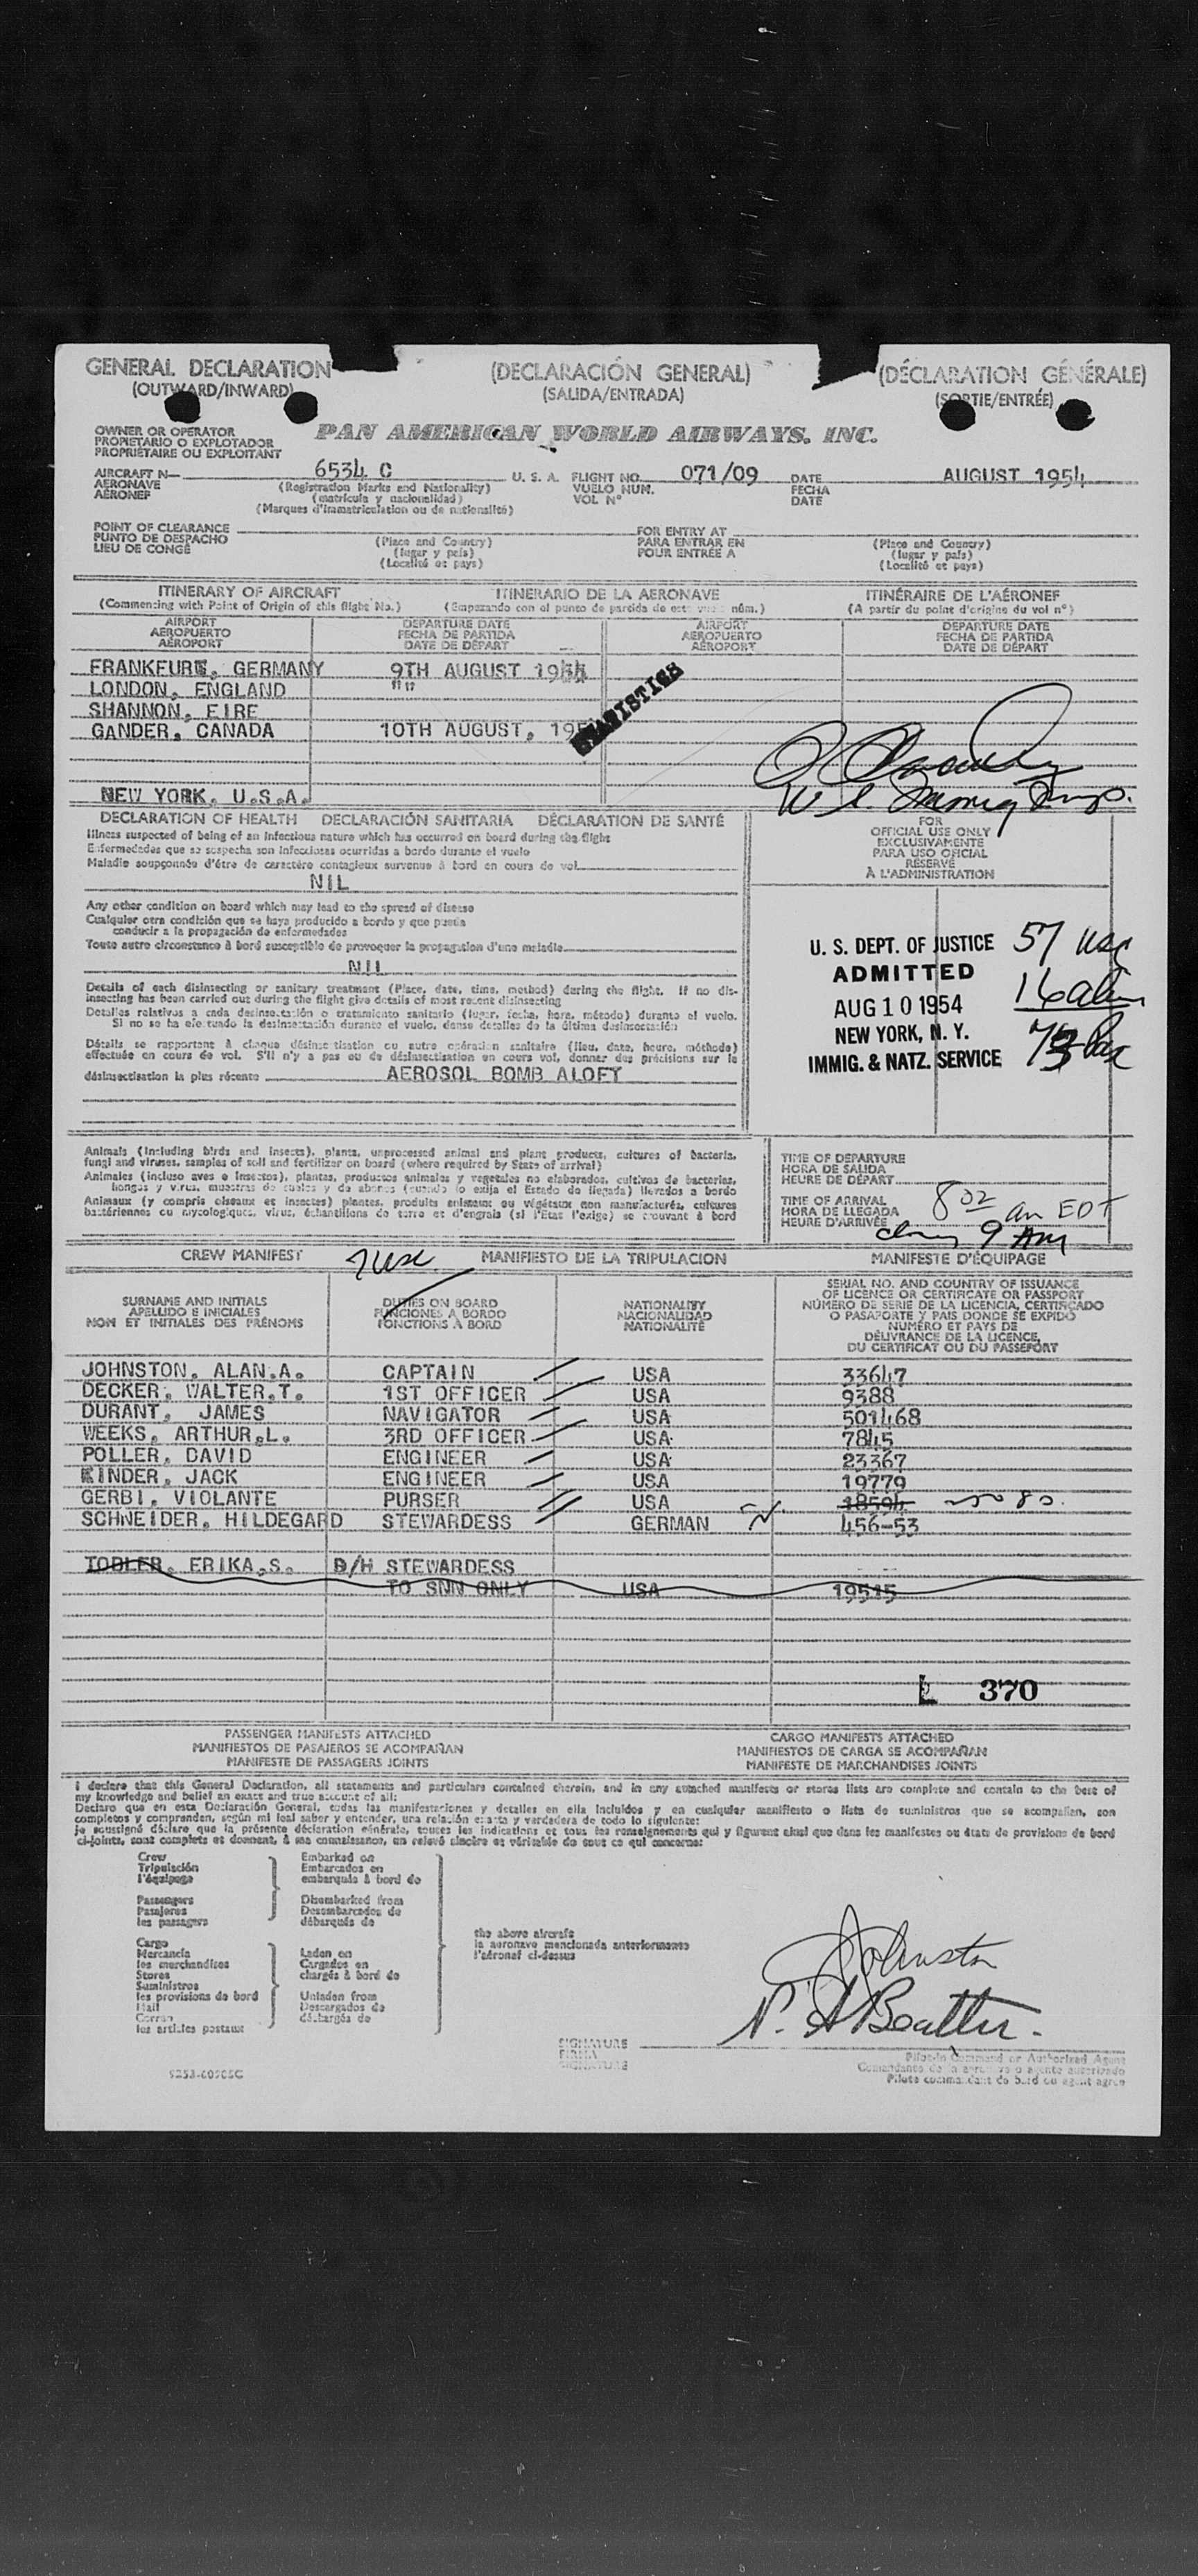 GENERAL DECLARATION (DECLARACIÓN GENERAL) (DÉCLARATION GÉNÉRALE)
(OUTWARD/INWARD) (SALIDA/ENTRADA) (SORTIE/ENTRÉE)
OWNER OR OPERATOR
PROPIETARIO O EXPLOTADOR
PROPRIÉTAIRE OU EXPLOITANT
PAN AMERICAN WORLD AIRWAYS, INC.
AIRCRAFT N— 6534 C U. S. A. FLIGHT NO. 071/09 DATE AUGUST 1954
AERONAVE (Registration Marks and Nationality) VUELO NUM. FECHA
AÉRONEF (matrícula y nacionalidad) VOL N° DATE
(Marques d'immatriculation ou de nationalité)
POINT OF CLEARANCE FOR ENTRY AT
PUNTO DE DESPACHO (Place and Country) PARA ENTRAR EN (Place and Country)
LIEU DE CONGÉ (lugar y país) POUR ENTRÉE A (lugar y país)
(Localité et pays) (Localité et pays)
ITINERARY OF AIRCRAFT ITINERARIO DE LA AERONAVE ITINÉRAIRE DE L'AÉRONEF
(Commencing with Point of Origin of this flight No.) (Empezando con el punto de partida de este núm.) (A partir du point d'origine du vol n°)
AIRPORT DEPARTURE DATE AIRPORT DEPARTURE DATE
AEROPUERTO FECHA DE PARTIDA AEROPUERTO FECHA DE PARTIDA
AÉROPORT DATE DE DÉPART AÉROPORT DATE DE DÉPART
FRANKFURT, GERMANY 9TH AUGUST 1954
LONDON, ENGLAND " "
SHANNON, EIRE
GANDER, CANADA 10TH AUGUST,
STATISTICS
NEW YORK, U.S.A.
DECLARATION OF HEALTH DECLARACIÓN SANITARIA DÉCLARATION DE SANTÉ
Illness suspected of being of an infectious nature which has occurred on board during the flight
Enfermedades que se sospecha son infecciosas ocurridas a bordo durante el vuelo
Maladie soupçonnée d'être de caractère contagieux survenue à bord en cours de vol
NIL
Any other condition on board which may lead to the spread of disease
Cualquier otra condición que se haya producido a bordo y que pueda
conducir a la propagación de enfermedades
Toute autre circonstance à bord susceptible de provoquer la propagation d'une maladie
NIL
Details of each disinsecting or sanitary treatment (Place, date, time, method) during the flight. If no dis-
insecting has been carried out during the flight give details of most recent disinsecting
Detalles relativos a cada desinsectación o tratamiento sanitario (lugar, fecha, hora, método) durante el vuelo.
Si no se ha efectuado la desinsectación durante el vuelo, dense detalles de la última desinsectación
Détails se rapportant à chaque désinsectisation ou autre opération sanitaire (lieu, date, heure, méthode)
effectuée en cours de vol. S'il n'y a pas eu de désinsectisation en cours vol, donner des précisions sur la
désinsectisation la plus récente AEROSOL BOMB ALOFT
FOR
OFFICIAL USE ONLY
EXCLUSIVAMENTE
PARA USO OFICIAL
RÉSERVÉ
À L'ADMINISTRATION
U. S. DEPT. OF JUSTICE 57 usc
ADMITTED 16 alien
AUG 10 1954
NEW YORK, N. Y. 73 Pax
IMMIG. & NATZ. SERVICE
Animals (including birds and insects), plants, unprocessed animal and plant products, cultures of bacteria,
fungi and viruses, samples of soil and fertilizer on board (where required by State of arrival)
Animales (incluso aves e insectos), plantas, productos animales y vegetales no elaborados, cultivos de bacterias,
hongos y virus, muestras de suelos y de abonos (cuando lo exija el Estado de llegada) llevados a bordo
Animaux (y compris oiseaux et insectes) plantes, produits animaux ou végétaux non manufacturés, cultures
bactériennes ou mycologiques, virus, échantillons de terre et d'engrais (si l'Etat l'exige) se trouvant à bord
TIME OF DEPARTURE
HORA DE SALIDA
HEURE DE DÉPART
TIME OF ARRIVAL
HORA DE LLEGADA 8 02 am EDT
HEURE D'ARRIVÉE 9 AM
CREW MANIFEST 7 usc MANIFIESTO DE LA TRIPULACION MANIFESTE D'ÉQUIPAGE
SURNAME AND INITIALS
APELLIDO E INICIALES
NON ET INITIALES DES PRÉNOMS
DUTIES ON BOARD
FUNCIONES A BORDO
FONCTIONS À BORD
NATIONALITY
NACIONALIDAD
NATIONALITÉ
SERIAL NO. AND COUNTRY OF ISSUANCE
OF LICENCE OR CERTIFICATE OR PASSPORT
NÚMERO DE SERIE DE LA LICENCIA, CERTIFICADO
O PASAPORTE Y PAIS DONDE SE EXPIDO
NUMÉRO ET PAYS DE
DÉLIVRANCE DE LA LICENCE,
DU CERTIFICAT OU DU PASSEPORT
JOHNSTON, ALAN.A. CAPTAIN USA 33647
DECKER, WALTER.T. 1ST OFFICER USA 9388
DURANT, JAMES NAVIGATOR USA 501468
WEEKS, ARTHUR.L. 3RD OFFICER USA 7845
POLLER, DAVID ENGINEER USA 23367
KINDER, JACK ENGINEER USA 19779
GERBI, VIOLANTE PURSER USA 18594
SCHNEIDER, HILDEGARD STEWARDESS GERMAN 456-53
TOBLER, ERIKA.S. D/H STEWARDESS
TO SNN ONLY USA 19515
L 370
PASSENGER MANIFESTS ATTACHED CARGO MANIFESTS ATTACHED
MANIFIESTOS DE PASAJEROS SE ACOMPAÑAN MANIFIESTOS DE CARGA SE ACOMPAÑAN
MANIFESTE DE PASSAGERS JOINTS MANIFESTE DE MARCHANDISES JOINTS
I declare that this General Declaration, all statements and particulars contained therein, and in any attached manifests or stores lists are complete and contain to the best of
my knowledge and belief an exact and true account of all:
Declaro que en esta Declaración General, todas las manifestaciones y detalles en ella incluidos y en cualquier manifiesto o lista de suministros que se acompañan, son
completos y comprenden, según mi leal saber y entender, una relación exacta y verdadera de todo lo siguiente:
je soussigné déclare que la présente déclaration générale, toutes les indications et tous les renseignements qui y figurent ainsi que dans les manifestes ou états de provisions de bord
ci-joints, sont complets et donnent, à ma connaissance, un relevé sincère et véritable de tout ce qui concerne:
Crew Embarked on
Tripulación Embarcados en
l'équipage embarqués à bord de
Passengers Disembarked from
Pasajeros Desembarcados de
les passagers débarqués de
Cargo
Mercancía Laden on
les marchandises Cargados en
Stores chargés à bord de
Suministros
les provisions de bord Unladen from
Mail Descargados de
Correo déchargés de
les articles postaux
the above aircraft
la aeronave mencionada anteriormente
l'aéronef ci-dessus
Johnston
SIGNATURE
FIRMA
SIGNATURE
Pilot-in Command or Authorized Agent
Comandante de la aeronave o agente autorizado
Pilote commandant de bord ou agent agréé